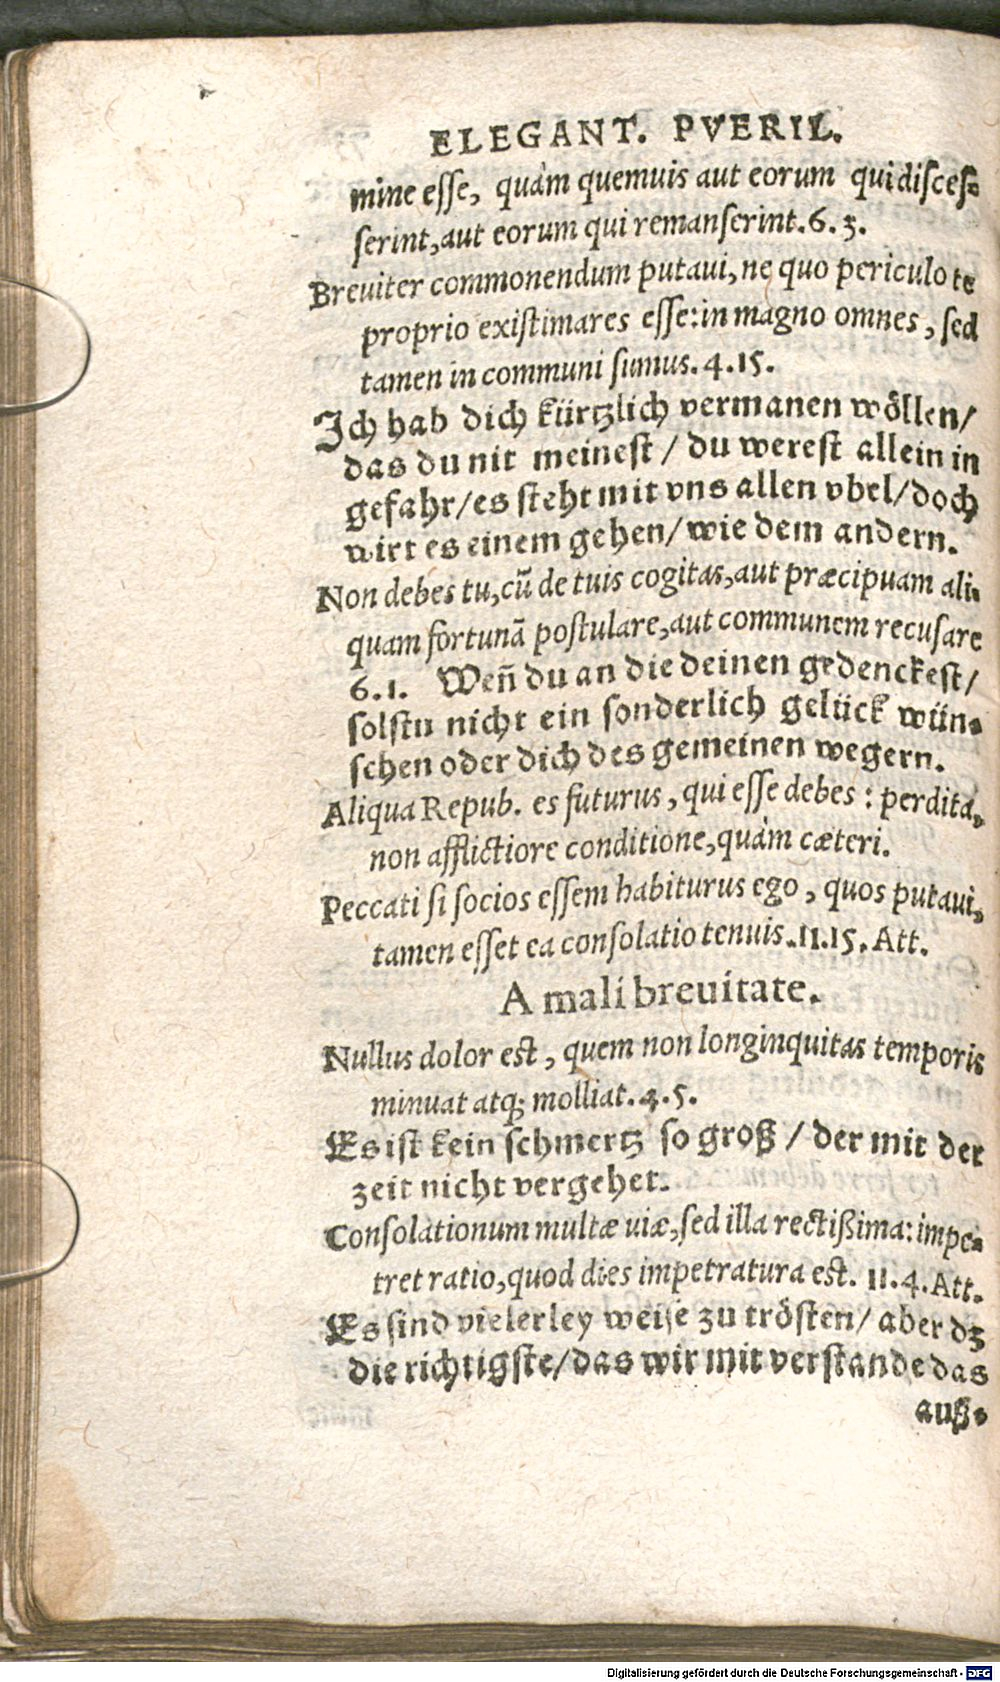 ELEGANT. PVERIL.
mine esse, quàm quemuis aut eorum qui disces-
serint, aut eorum qui remanserint. 6. 3.
Breuiter commonendum putaui, ne quo periculo te
proprio existimares esse: in magno omnes, sed
tamen in communi sumus. 4. 15.
Ich hab dich kürtzlich vermanen wöllen/
das du nit meinest / du werest allein in
gefahr/es steht mit vns allen vbel/doch
wirt es einem gehen/wie dem andern.
Non debes tu, cū de tuis cogitas, aut præcipuam ali-
quam fortunā postulare, aut communem recusare
6. 1. Weñ du an die deinen gedenckest/
solstu nicht ein sonderlich gelück wün-
schen oder dich des gemeinen wegern.
Aliqua Repub. es futurus, qui esse debes: perdita,
non afflictiore conditione, quàm cæteri.
Peccati si socios essem habiturus ego, quos putaui,
tamen esset ea consolatio tenuis. 11. 15. Att.
A mali breuitate.
Nullus dolor est, quem non longinquitas temporis
minuat atq; molliat. 4. 5.
Es ist kein schmertz so groß / der mit der
zeit nicht vergehet.
Consolationum multæ uiæ, sed illa rectißima: impe-
tret ratio, quod dies impetratura est. 11. 4. Att.
Es sind vielerley weise zu trösten/ aber dz
die richtigste/das wir mit verstande das
auß-
Digitalisierung gefördert durch die Deutsche Forschungsgemeinschaft - DFG